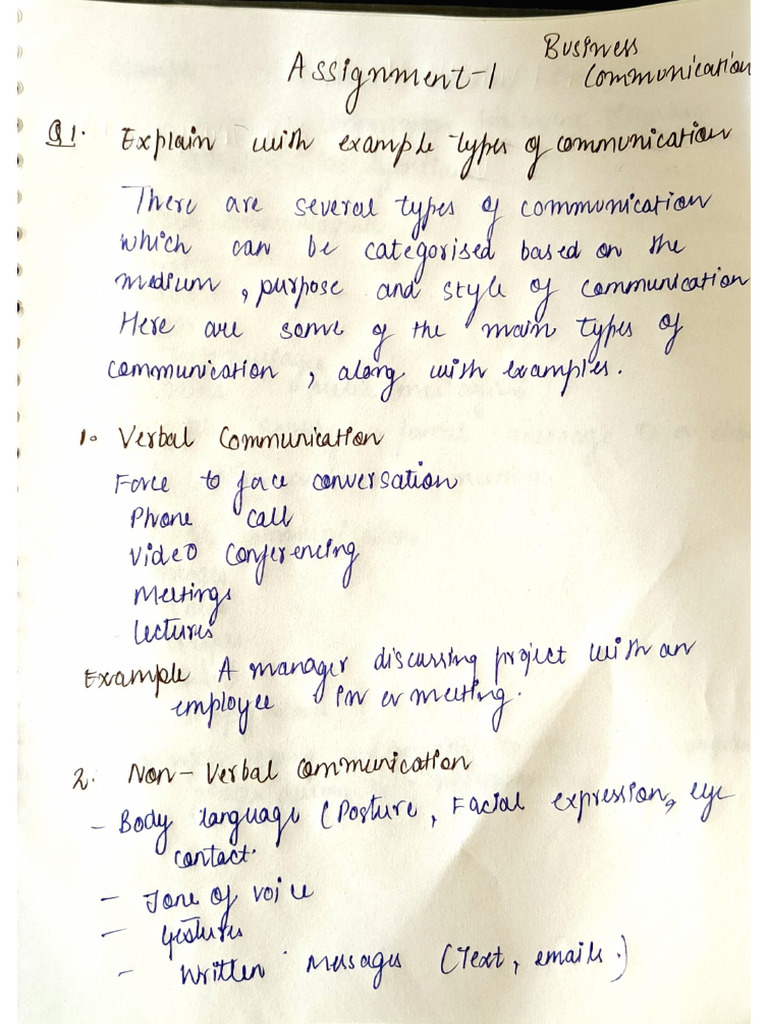 Business
Assignment-1 Communication
Q1. Explain with example types of communication
There are several types of communication
which can be categorised based on the
medium, purpose and style of communication
Here are some of the main types of
communication, along with examples.
1. Verbal Communication
Face to face conversation
Phone call
Video Conferencing
Meetings
Lectures
Example A manager discussing project with an
employee in a meeting.
2. Non-Verbal Communication
- Body language (Posture, Facial expression, eye
contact.
- Tone of voice
- Gestures
- Written messages (Text, emails.)